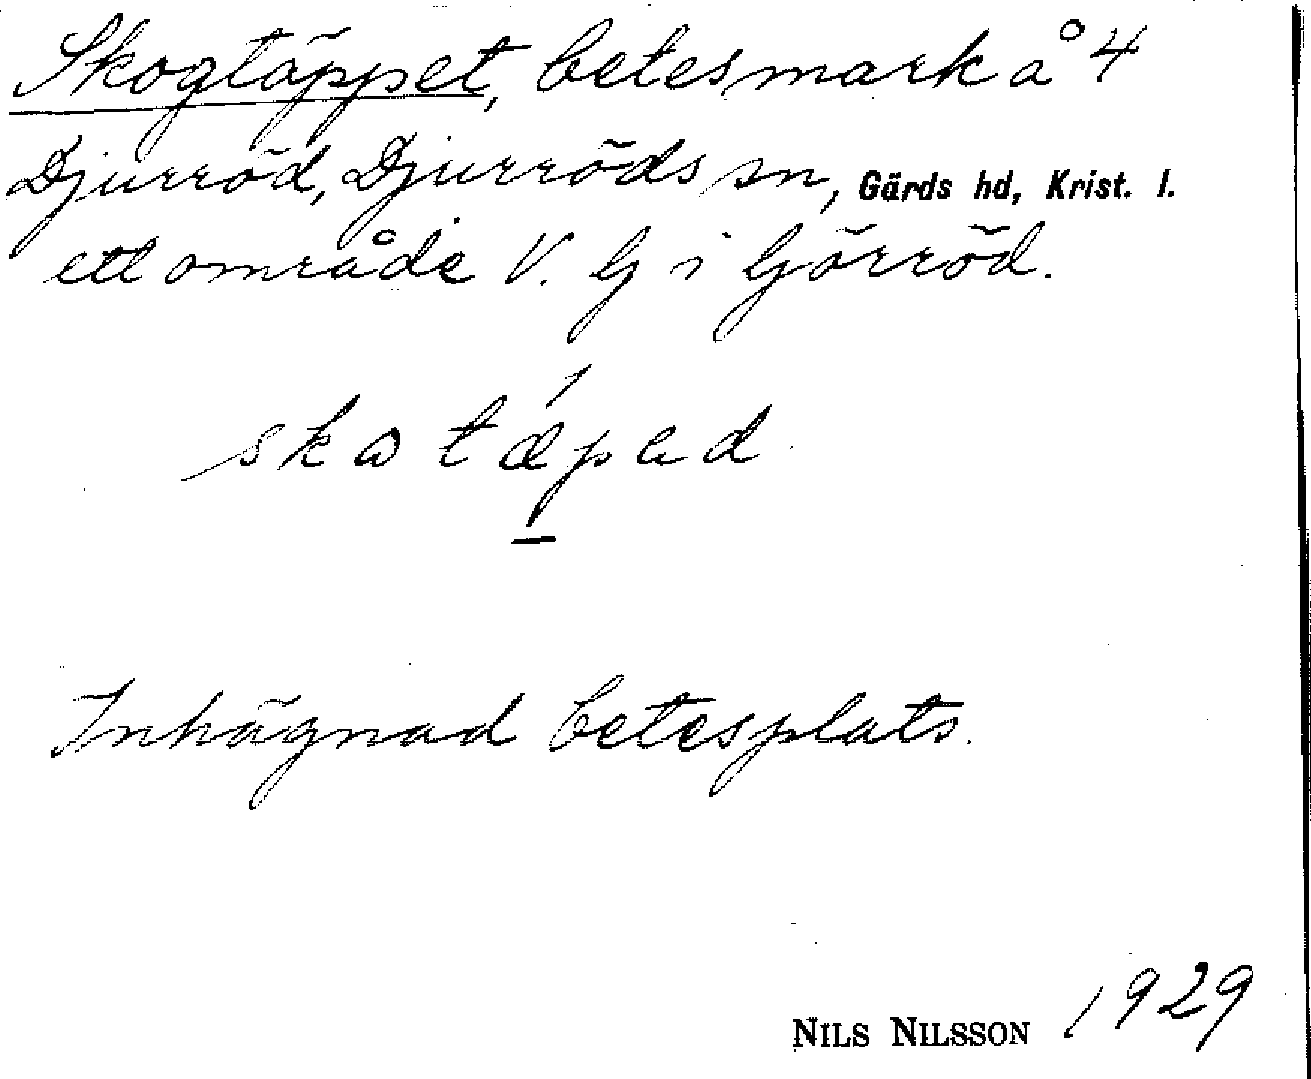 Skogtäppet, betesmark å 4
Djurröd, Djurröds sn, Gärds hd, Krist. l.
ett område V. G i Gjörröd.
skotæped
Inhägnad betesplats.
NILS NILSSON 1929